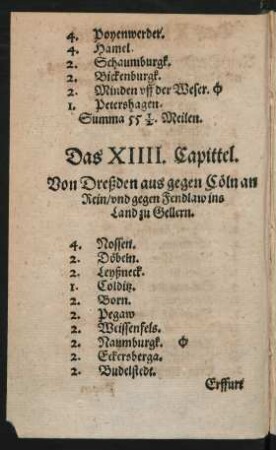 4. Poyenwerder.
4. Hamel.
2. Schaumburgk.
2. Bickenburgk.
2. Minden vff der Weser. ϕ
1. Petershagen.
Summa 55 1/2. Meilen.
Das XIIII. Capittel.
Von Dreßden aus gegen Cöln an
Rein/vnd gegen Fendlaw ins
Land zu Gellern.
4. Nossen.
2. Döbeln.
2. Leyßneck.
1. Colditz.
2. Born.
2. Pegaw
2. Weissenfels.
2. Naumburgk. ϕ
2. Eckersberga.
2. Budelstedt.
Erffurt